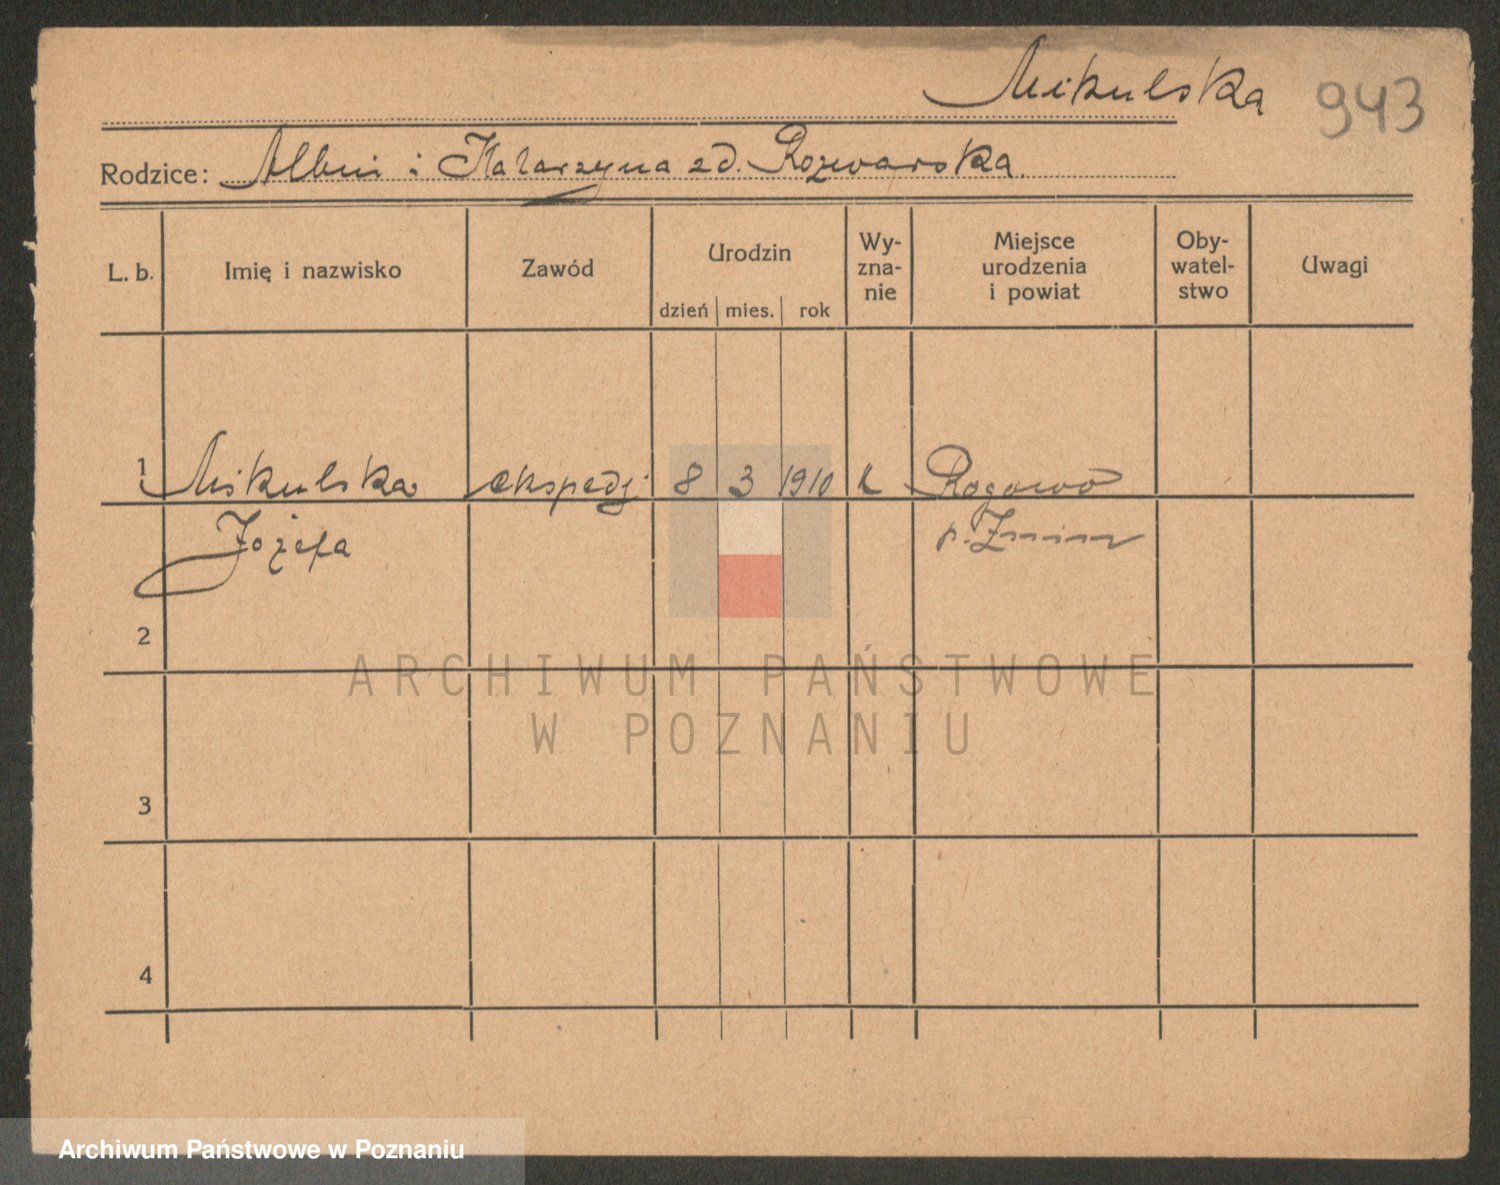 Mikulska 943
Rodzice: Albin i Katarzyna zd. Rozwarska
L. b. Imię i nazwisko Zawód Urodzin dzień mies. rok Wy-zna-nie Miejsce urodzenia i powiat Oby-watel-stwo Uwagi
1 Mikulska ekspedj. 8 3 1910 k Rogowo
Józefa p. Żnin
2
ARCHIWUM PAŃSTWOWE
W POZNANIU
3
4
Archiwum Państwowe w Poznaniu